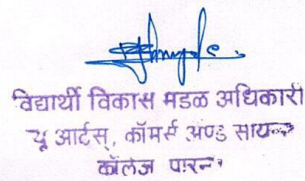 विद्यार्थी विकास मडळ अधिकारी
यू आर्टस्, कॉमर्स अण्ड सायन्स
कॉलेज पारनेर